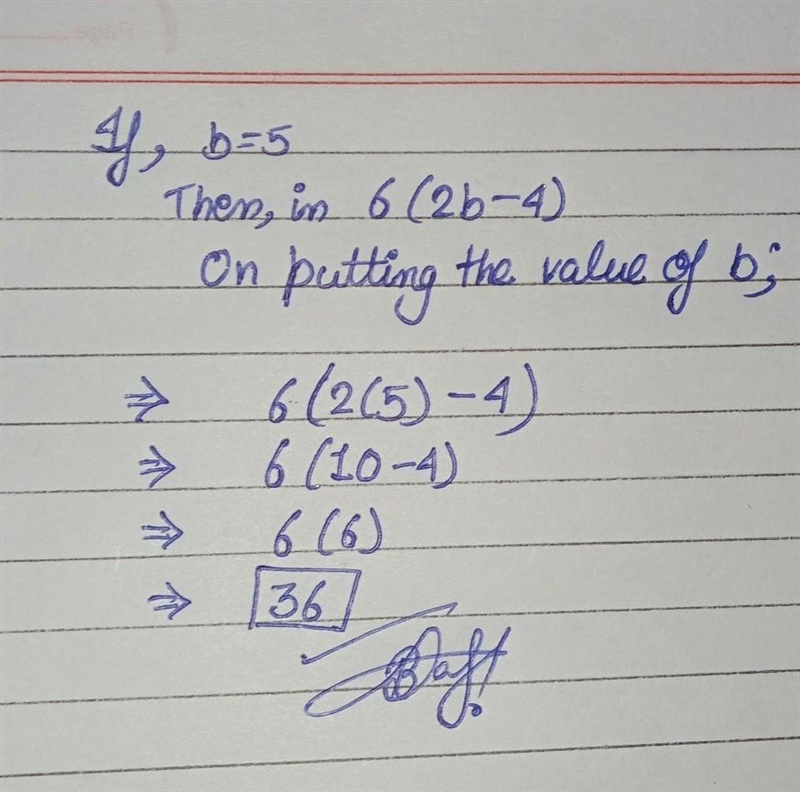 If, b=5
Then, in 6(2b-4)
On putting the value of b;
⇒ 6(2(5)-4)
⇒ 6(10-4)
⇒ 6(6)
⇒ 36